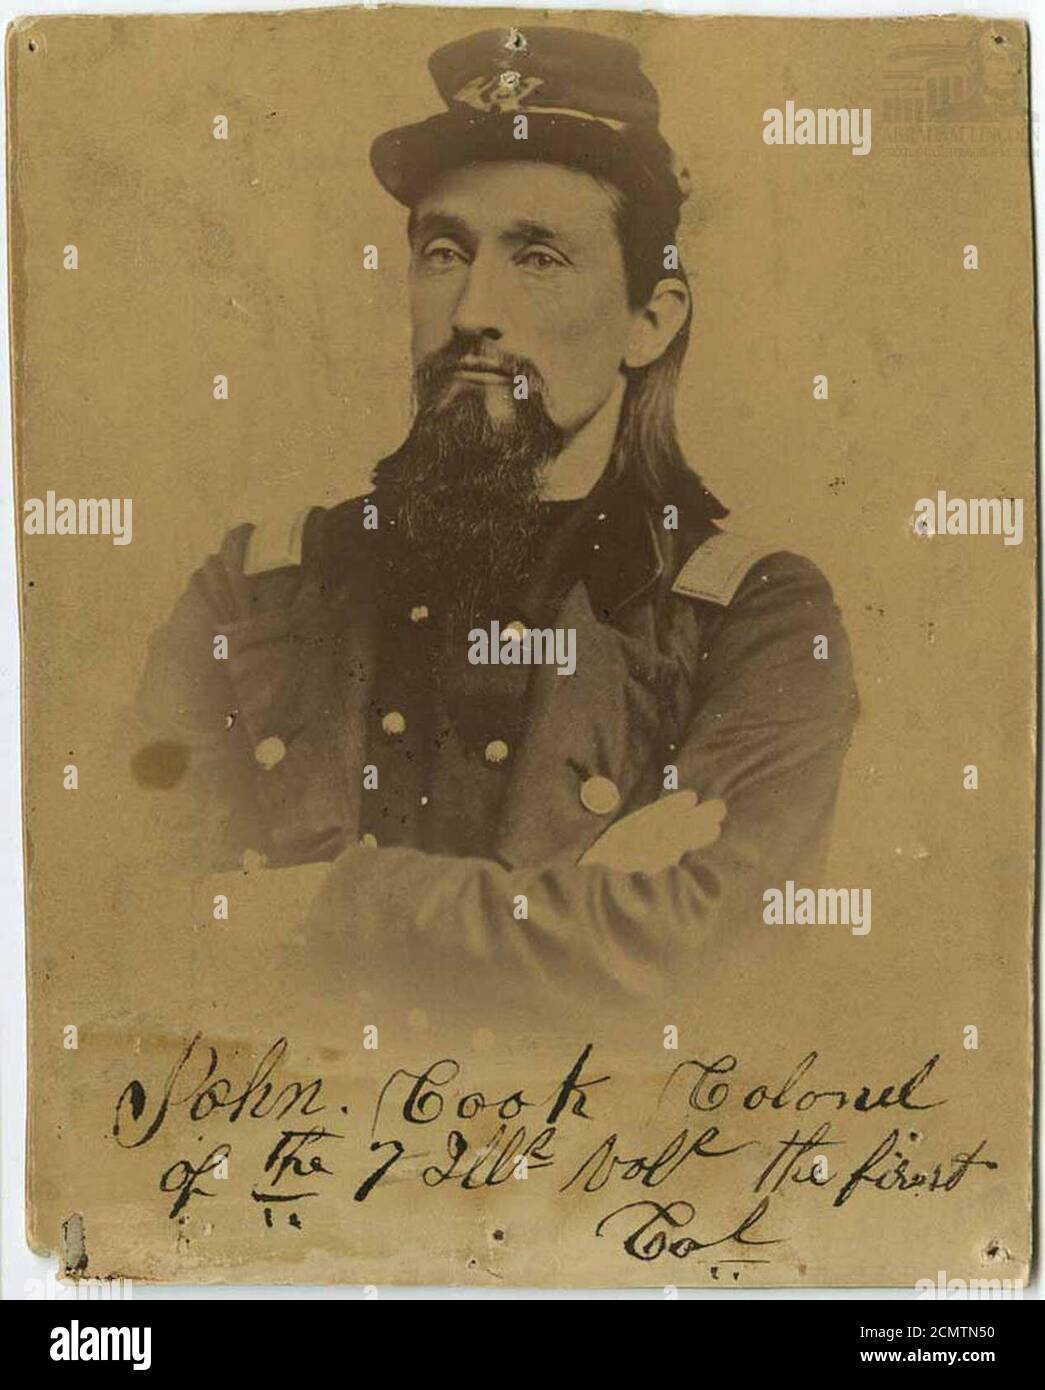 ABRAHAM LINCOLN
alamy
alamy
alamy
alamy
alamy
John. Cook Colonel
of the 7 Ills Vols the first
Col
alamy
Image ID: 2CMTN50
www.alamy.com